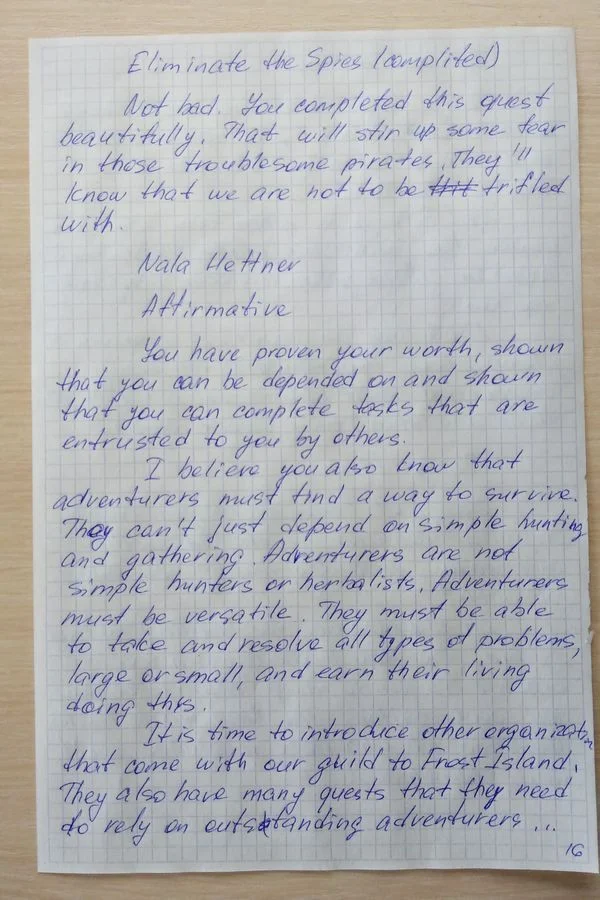 Eliminate the Spies (complited)
Not bad. You completed this quest
beautifully. That will stir up some fear
in those troublesome pirates. They'll
know that we are not to be trifled
with.
Nala Hettner
Affirmative
You have proven your worth, shown
that you can be depended on and shown
that you can complete tasks that are
entrusted to you by others.
I believe you also know that
adventurers must find a way to survive.
They can't just depend on simple hunting
and gathering. Adventurers are not
simple hunters or herbalists. Adventurers
must be versatile. They must be able
to take and resolve all types of problems,
large or small, and earn their living
doing this.
It is time to introduce other
that come with our guild to Frost Island.
They also have many quests that they need
to rely on outstanding adventurers ...
16